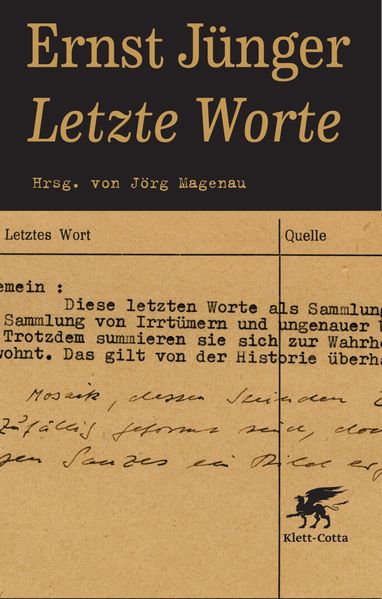 Ernst Jünger
Letzte Worte
Hrsg. von Jörg Magenau
Letztes Wort Quelle
emein :
Diese letzten Worte als Sammlung
Sammlung von Irrtümern und ungenauer
Trotzdem summieren sie sich zur Wahrhe
wohnt. Das gilt von der Historie überha
Mosaik, dessen
zufällig geformt sind,
Ganzes ein Bild
Klett-Cotta